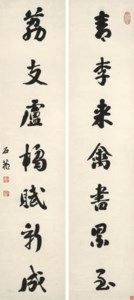 青李来禽書累至
荔支盧橘賦新成
石菴